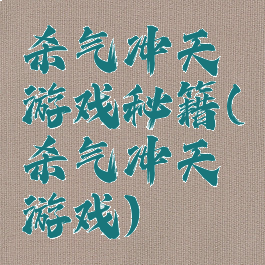 杀气冲天
游戏秘籍(
杀气冲天
游戏)